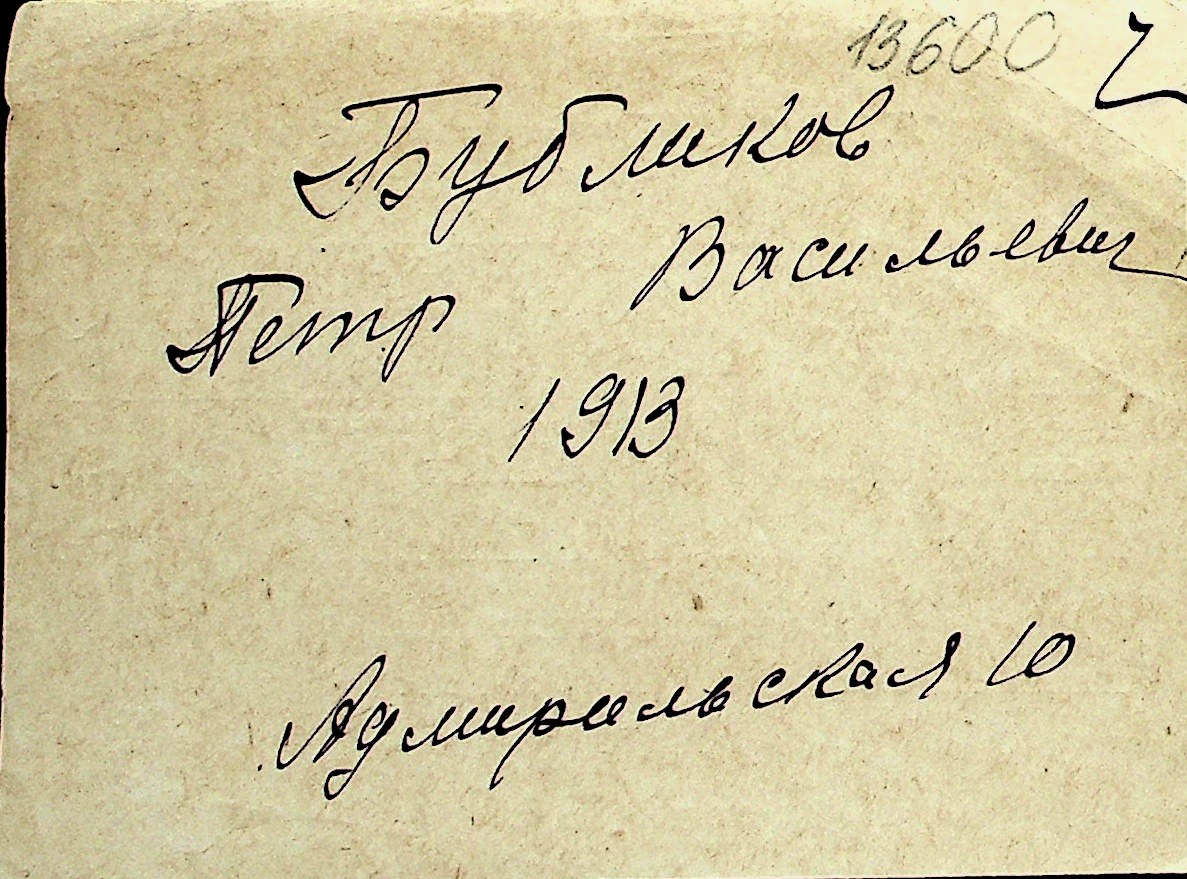 13600
Бубликов
Петр Васильевич
1913
Адмиральская 10